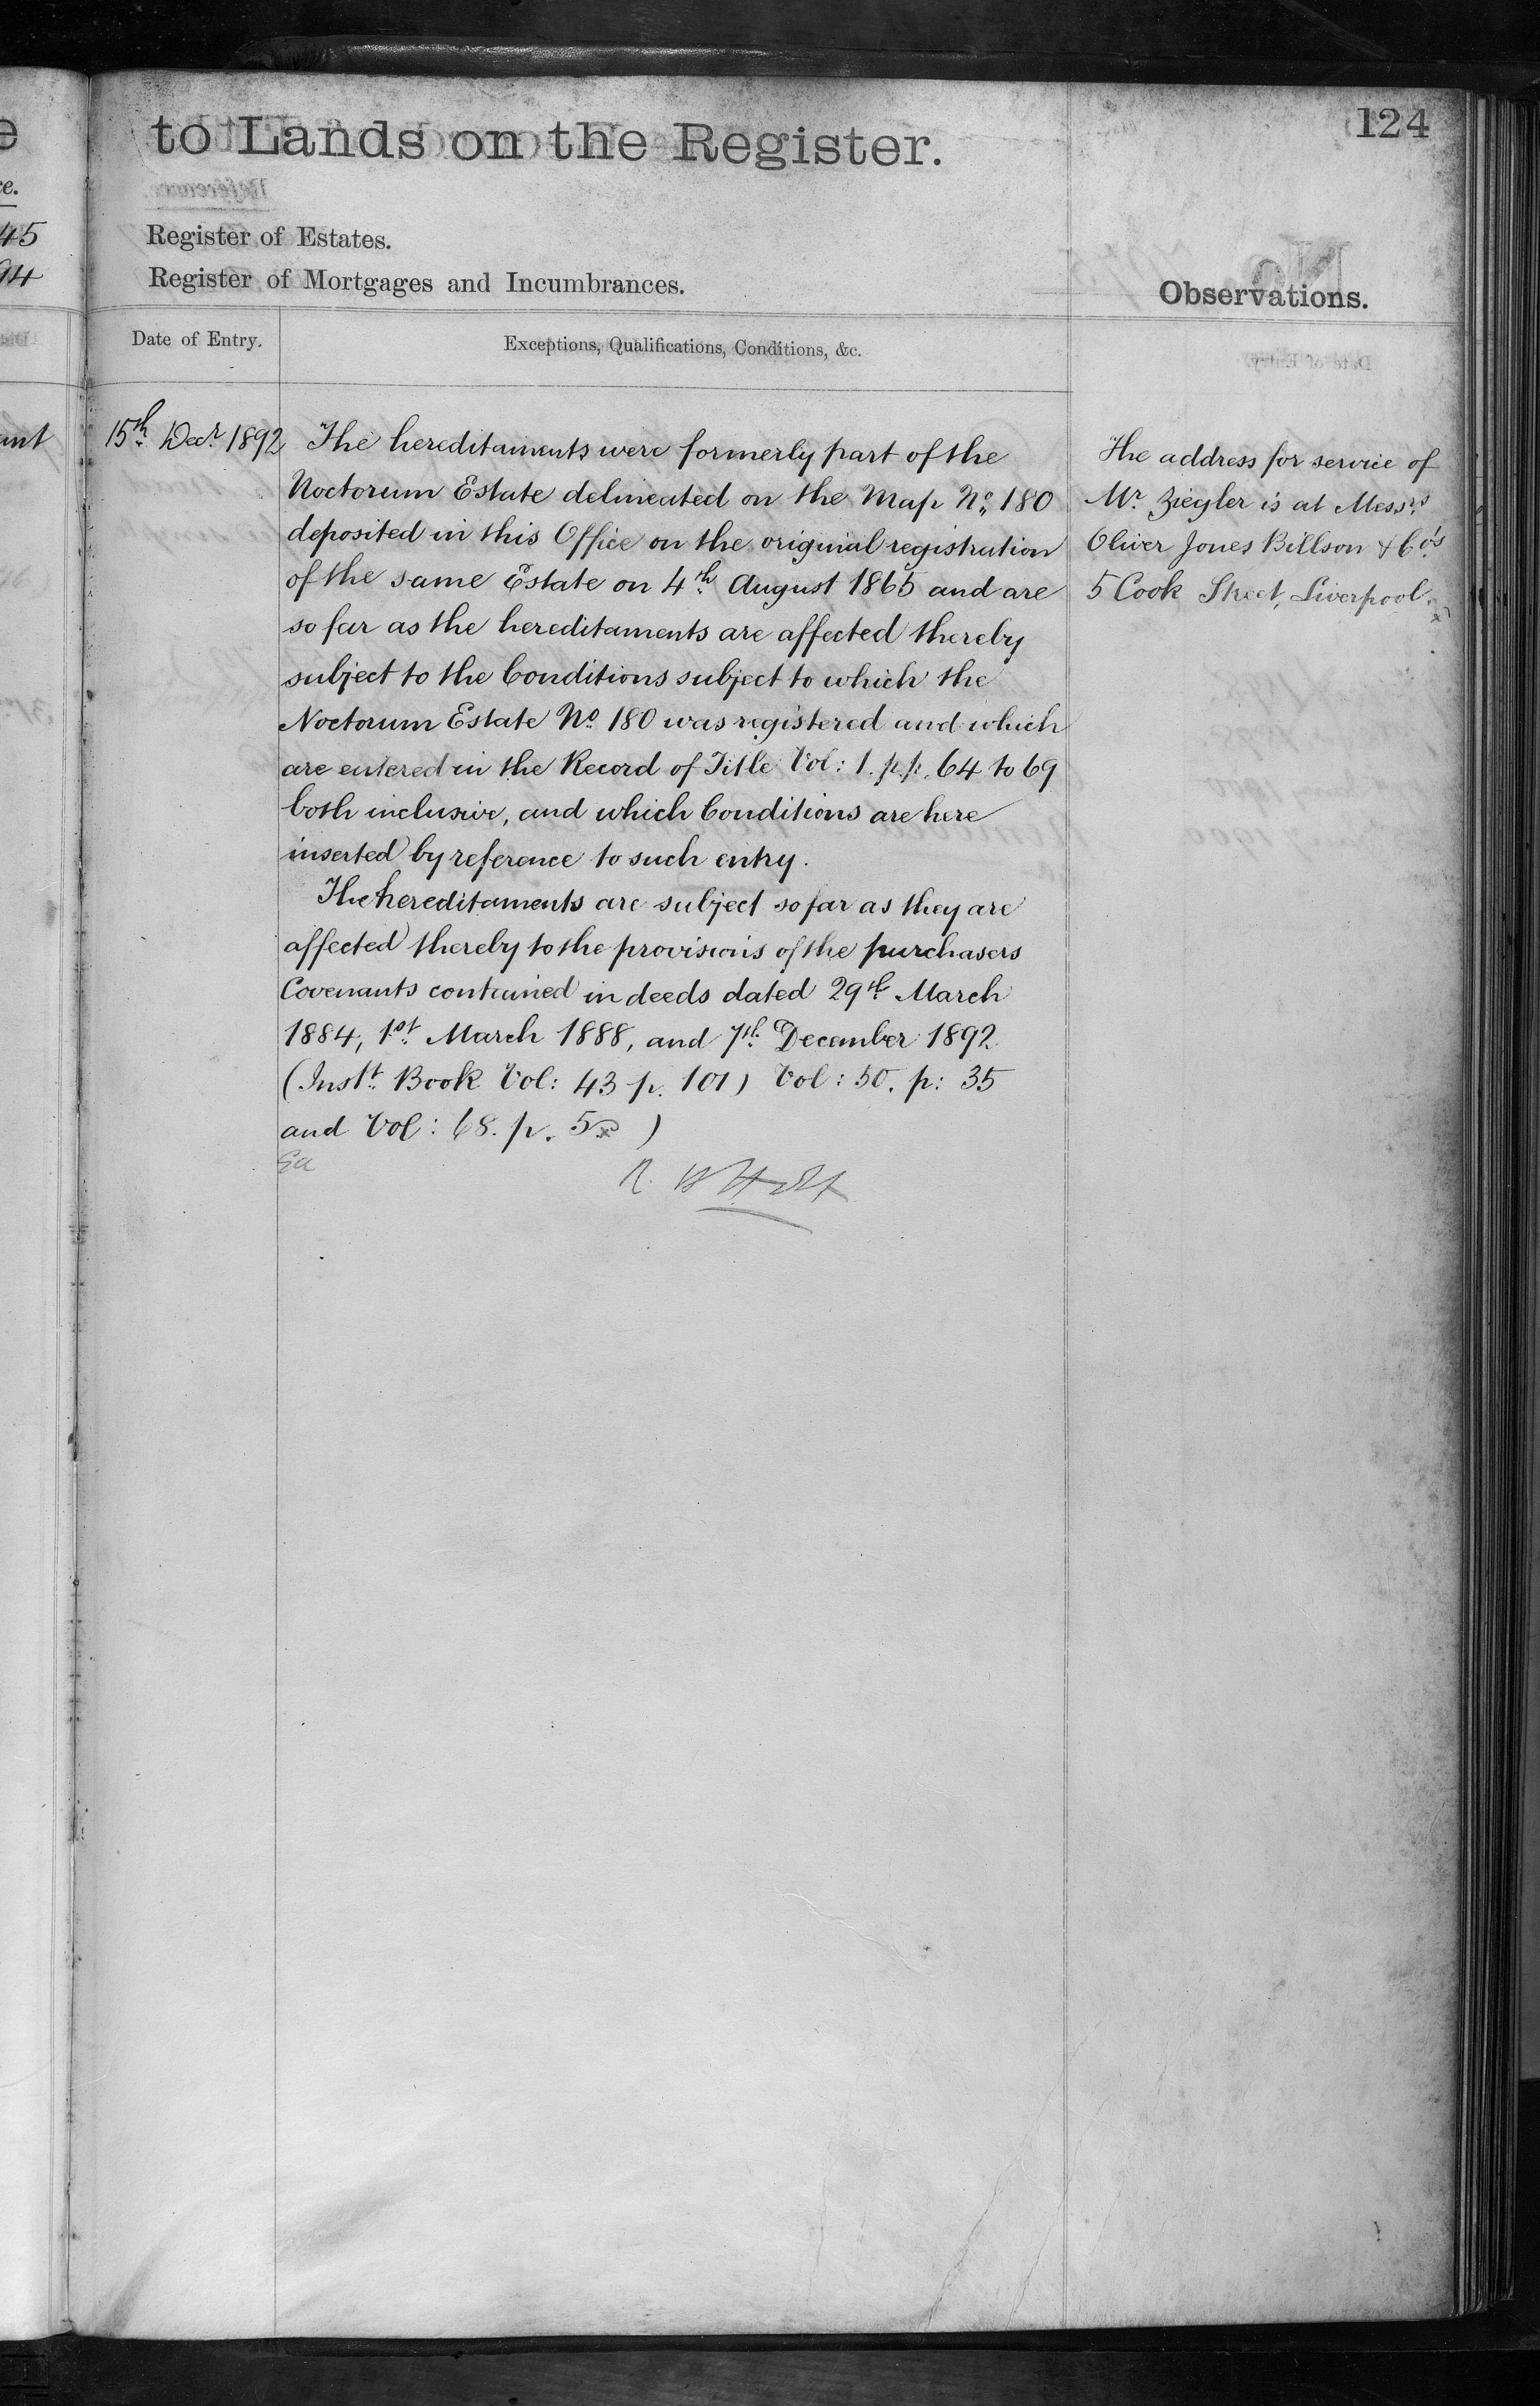 124
to Lands on the Register.
Register of Estates.
Register of Mortgages and Incumbrances.
Observations.
Date of Entry.
Exceptions, Qualifications, Conditions, &c.
15th Decr 1892
The hereditaments were formerly part of the
Noctorum Estate delineated on the Map No 180
deposited in this Office on the original registration
of the same Estate on 4th August 1865 and are
so far as the hereditaments are affected thereby
subject to the Conditions subject to which the
Noctorum Estate No 180 was registered and which
are entered in the Record of Title Vol: 1. p.p. 64 to 69
both inclusive, and which Conditions are here
inserted by reference to such entry.
The hereditaments are subject so far as they are
affected thereby to the provisions of the purchasers
Covenants contained in deeds dated 29th March
1884, 1st March 1888, and 7th December 1892
(Instt Book Vol: 43 p. 101) Vol: 50. p: 35
and Vol: 68. p. 5 )
The address for service of
Mr Ziegler is at Messrs
Oliver Jones Billson & Co's
5 Cook Street, Liverpool.
45
94